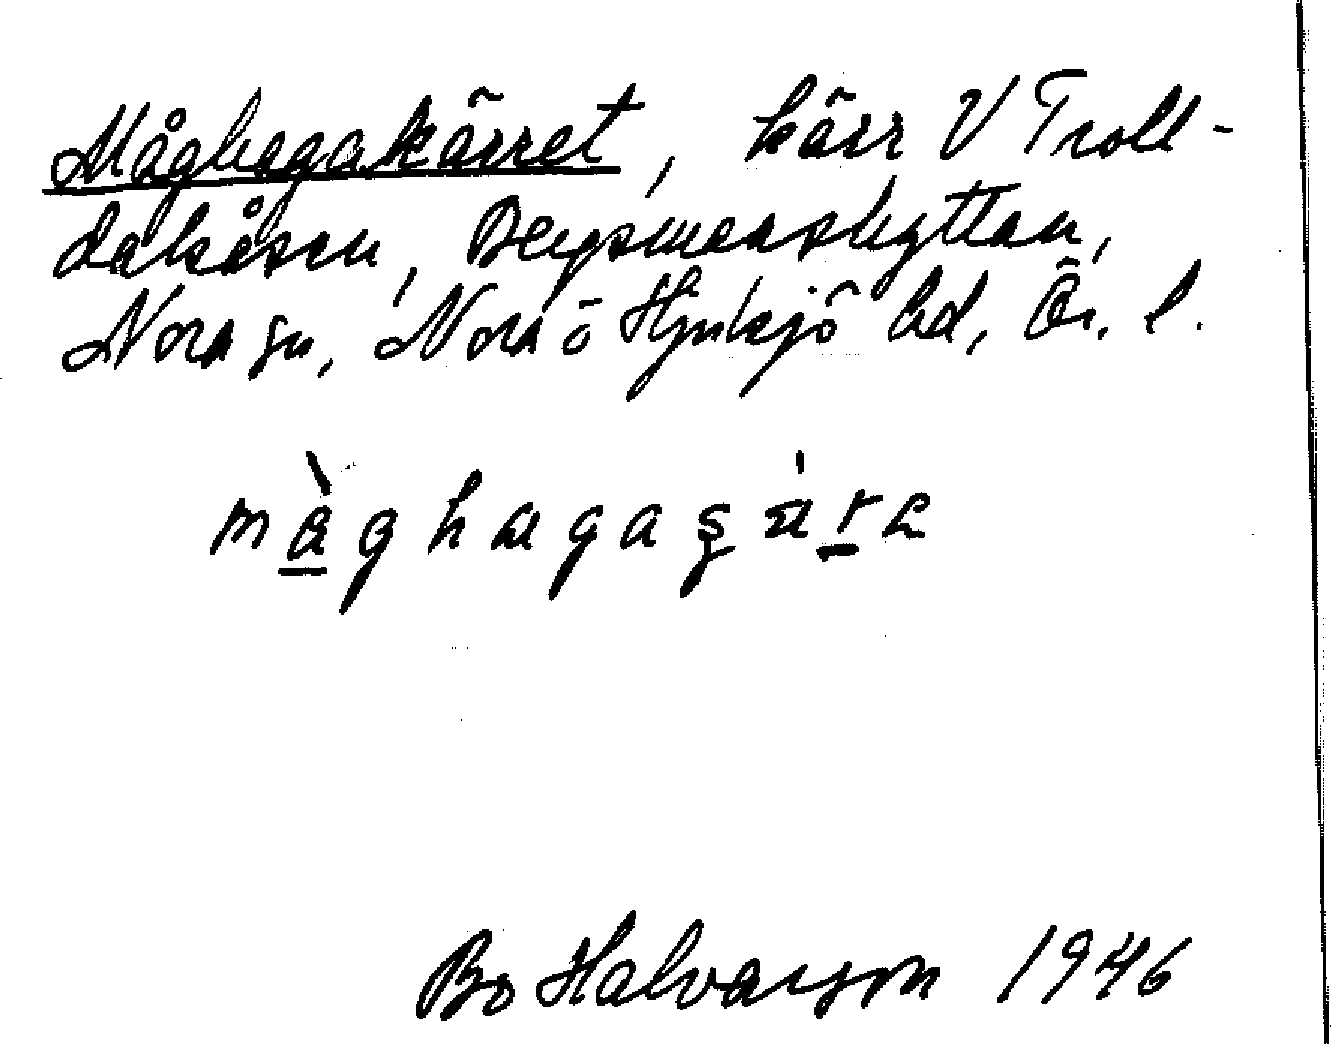 Måghagakärret, kärr V Troll-
dalsåsen, Bergsmanshyttan,
Nora sn, Nora o Hjulsjö hd, Ör. l.
Bo Halvarson 1946